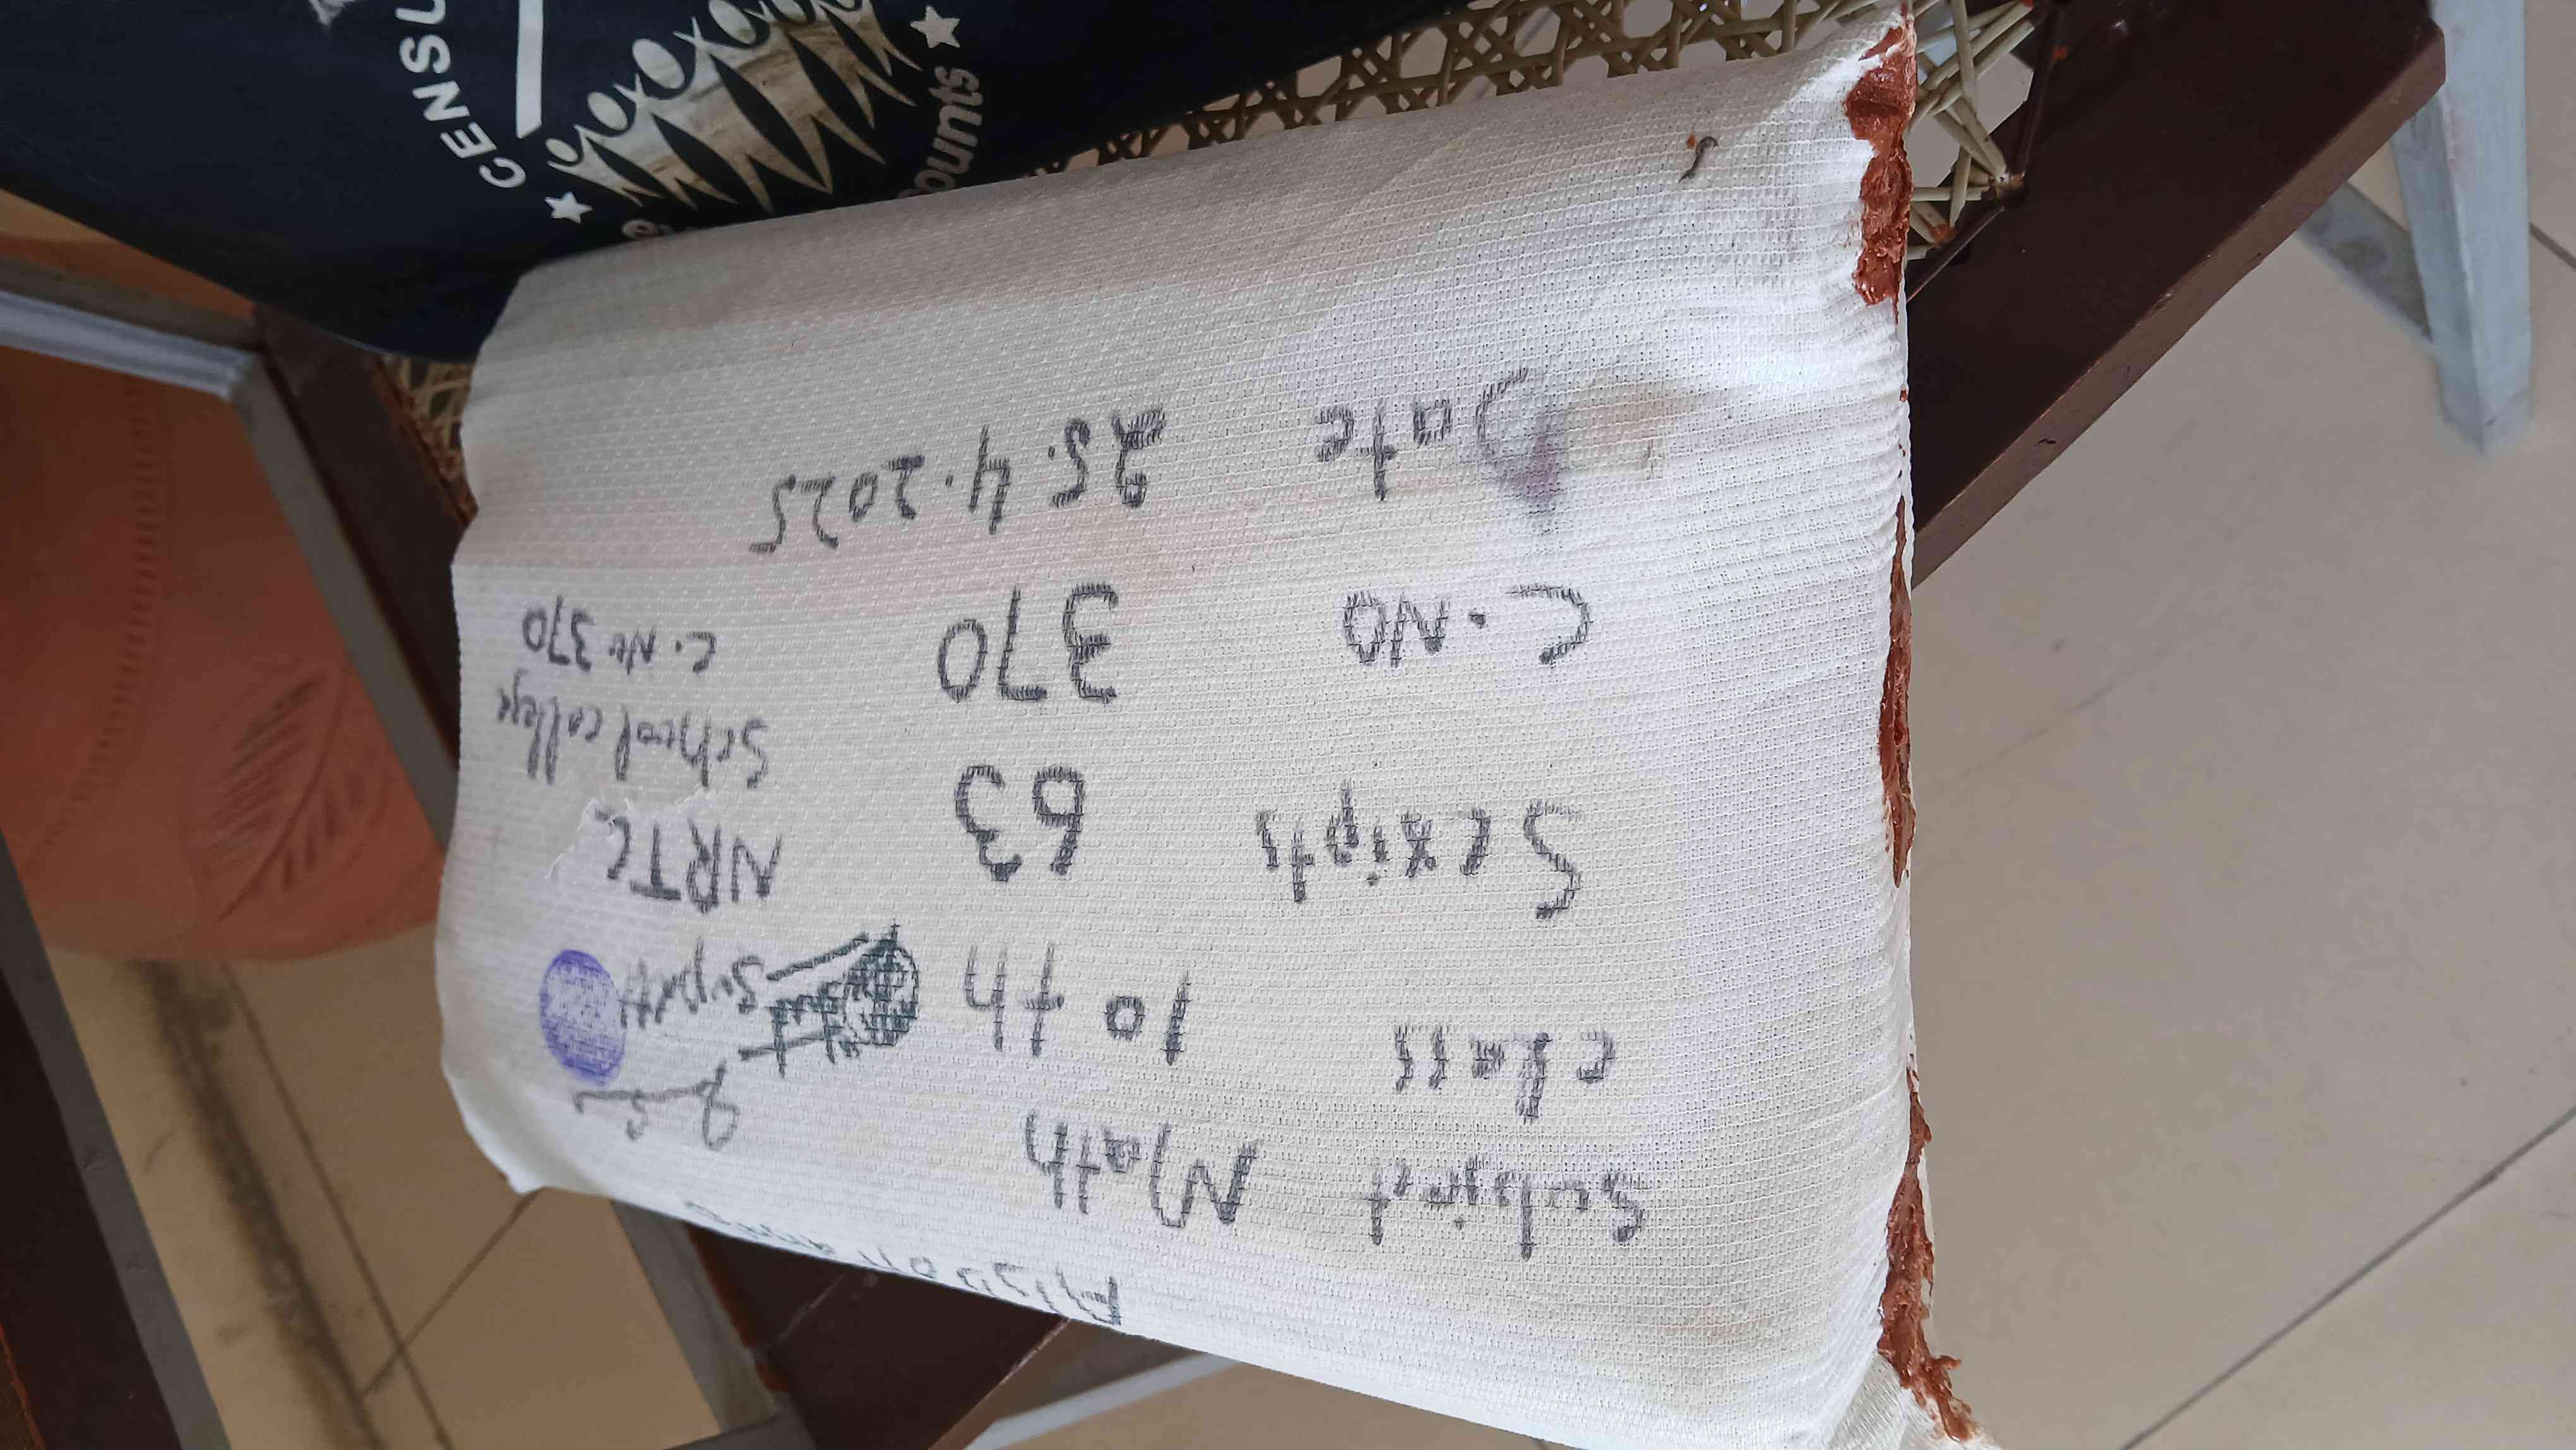 Date 25.4.2025
C.NO 370
Scripts 63
class 10th
Subject Math
C. No 370
School college
NRTC
Supdtt
CENSU
ounts